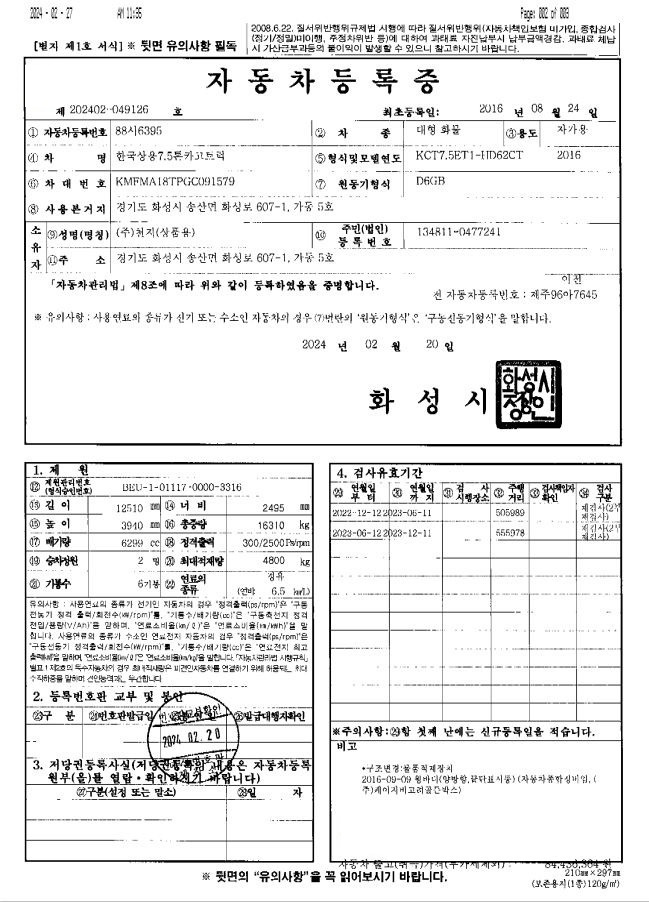 2024 - 02 - 27 AM 11:35 Page: 002 of 003
[별지 제1호 서식] ※ 뒷면 유의사항 필독
2008.6.22. 질서위반행위규제법 시행에 따라 질서위반행위(자동차책임보험 미가입, 종합검사
(정기/정밀)미이행, 주정차위반 등)에 대하여 과태료 자진납부시 납부금액경감, 과태료 체납
시 가산금부과등의 불이익이 발생할 수 있으니 참고하시기 바랍니다.
자 동 차 등 록 증
제 202402-049126 호 최초등록일: 2016 년 08 월 24 일
① 자동차등록번호 88시6395 ② 차 종 대형 화물 ③용도 자가용
④ 차 명 한국상용7.5톤카고트럭 ⑤ 형식및모델연도 KCT7.5ET1-HD62CT 2016
⑥ 차 대 번 호 KMFMA18TPGC091579 ⑦ 원동기형식 D6GB
⑧ 사 용 본 거 지 경기도 화성시 송산면 화성로 607-1, 가동 5호
소유자 ⑨성명(명칭) (주)천지(상품용) ⑩ 주민(법인)등 록 번 호 134811-0477241
⑪주 소 경기도 화성시 송산면 화성로 607-1, 가동 5호
「자동차관리법」 제8조에 따라 위와 같이 등록하였음을 증명합니다.
이전
전 자동차등록번호 : 제주96아7645
※ 유의사항 : 사용연료의 종류가 전기 또는 수소인 자동차의 경우 ⑦번란의 '원동기형식'은 '구동전동기형식'을 말합니다.
2024 년 02 월 20 일
화 성 시
화성시
장인
1. 제 원
⑫ 제원관리번호 (형식승인번호) BEU-1-01117-0000-3316
⑬ 길 이 12510 mm ⑭ 너 비 2495 mm
⑮ 높 이 3940 mm ⑯ 총중량 16310 kg
⑰ 배기량 6299 cc ⑱ 정격출력 300/2500Ps/rpm
⑲ 승차정원 2 명 ⑳ 최대적재량 4800 kg
㉑ 기통수 6기통 ㉒ 연료의 종류 경유 (연비) 6.5 km/L
유의사항 : 사용연료의 종류가 전기인 자동차의 경우 "정격출력(ps/rpm)"은 "구동
전동기 정격 출력/회전수(kW/rpm)"를, "기통수/배기량(cc)"은 "구동축전지 정격
전압/용량(V/Ah)"를 말하며, "연료소비율(km/ℓ)"은 "연료소비율(km/kWh)"을 말
합니다. 사용연료의 종류가 수소인 연료전지 자동차의 경우 "정격출력(ps/rpm)"은
"구동전동기 정격출력/회전수(kW/rpm)"를, "기통수/배기량(cc)"은 "연료전지 최고
출력(kW)"을 말하며, "연료소비율(km/ℓ)"은 "연료소비율(km/kg)"을 말합니다. 「자동차관리법 시행규칙」
별표 1 제2호의 특수자동차의 경우 최대적재량은 피견인자동차를 연결하기 위해 허용되는 최대
수직하중을 말하며 견인능력과는 무관합니다.
2. 등록번호판 교부 및 봉인
㉓구 분 ㉔번호판발급일 ㉕봉인일 ㉖발급대행자확인
2024. 02. 20
3. 저당권등록사실(저당권등록의 내용은 자동차등록
원부(을)를 열람・확인하시기 바랍니다)
㉗구분(설정 또는 말소) ㉘일 자
4. 검사유효기간
㉙ 연월일 부 터 ㉚ 연월일 까 지 ㉛ 검 사 시행장소 ㉜ 주행 거리 ㉝ 검사책임자 확인 ㉞ 검사 구분
2022-12-12 2023-06-11 505989
2023-06-12 2023-12-11 655978
※주의사항:㉙항 첫째 난에는 신규등록일을 적습니다.
비고
*구조변경:물품적재장치
2016-09-09 윙바디(양방향,끝단표시등) (자동차종합정비업, (
주)케이지비고려골든박스)
자동차 출고(취득)가격(부가세제외) : 84,436,364 원
210mm×297mm
(보존용지(1종)120g/㎡)
※ 뒷면의 "유의사항"을 꼭 읽어보시기 바랍니다.